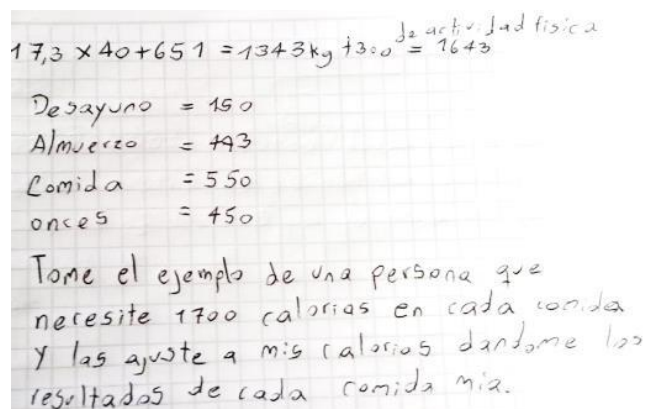 de actividad física
17,3 × 40 + 651 = 1343 kg + 300 = 1643
Desayuno = 150
Almuerzo = 493
Comida = 550
onces = 450
Tome el ejemplo de una persona que
necesite 1700 calorias en cada comida
Y las ajuste a mis calorias dandome los
resultados de cada comida mia.